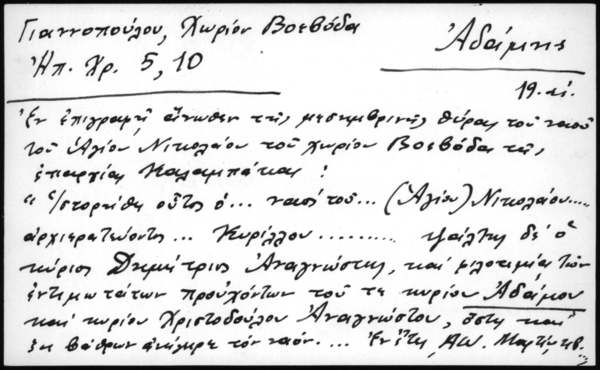 Γιαννοπούλου, Χωρίον Βοεβόδα
Ἠπ. Χρ. 5, 10
Ἀδάμης
19. αἰ.
Ἐν ἐπιγραφῇ ἄνωθεν τῆς μεσημβρινῆς θύρας τοῦ ναοῦ
τοῦ Ἁγίου Νικολάου τοῦ χωρίου Βοεβόδα τῆς
ἐπαρχίας Καλαμπάκας:
"Ἱστορήθη οὗτος ὁ... ναὸς τοῦ... (Ἁγίου) Νικολάου.....
ἀρχιερατεύοντος... Κυρίλλου......... δὲ ὁ
κύριος Δημήτριος Ἀναγνώστης, καὶ φιλοτιμίας τῶν
ἐντιμωτάτων προὐχόντων τοῦ τε κυρίου Ἀδάμου
καὶ κυρίου Χριστοδούλου Ἀναγνώστου, ὅστις καὶ
ἐκ βάθρων ἀνήγειρε τὸν ναόν.... Ἐν ἔτει, ΑΩ. Μαρτίῳ